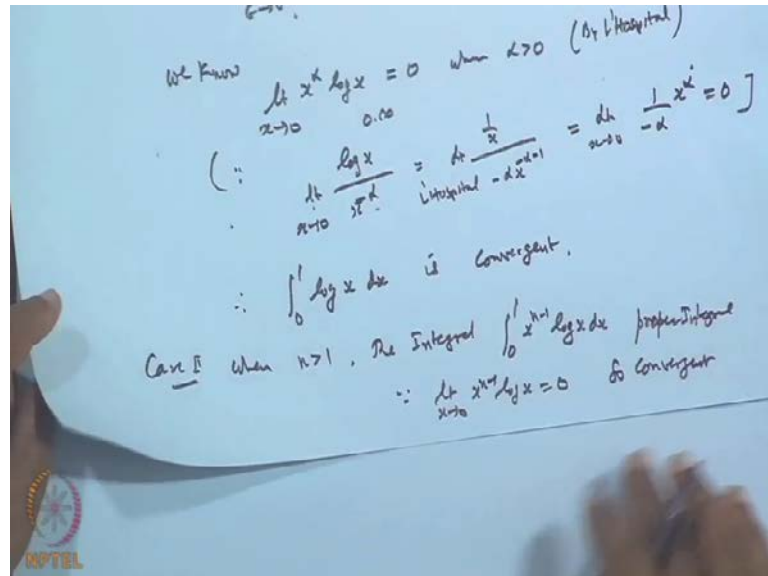 We know lt x→0 x^α log x = 0 when α>0 (By L'Hospital)
0.∞
(∵ lt x→0 log x / x^-α = lt L'Hospital (1/x) / (-α x^(-α-1)) = lt x→0 1/-α x^α = 0 ]
∴ ∫_0^1 log x dx is convergent.
Case II when n>1, The Integral ∫_0^1 x^(n-1) log x dx proper Integral
∵ lt x→0 x^(n-1) log x = 0 So convergent
NPTEL